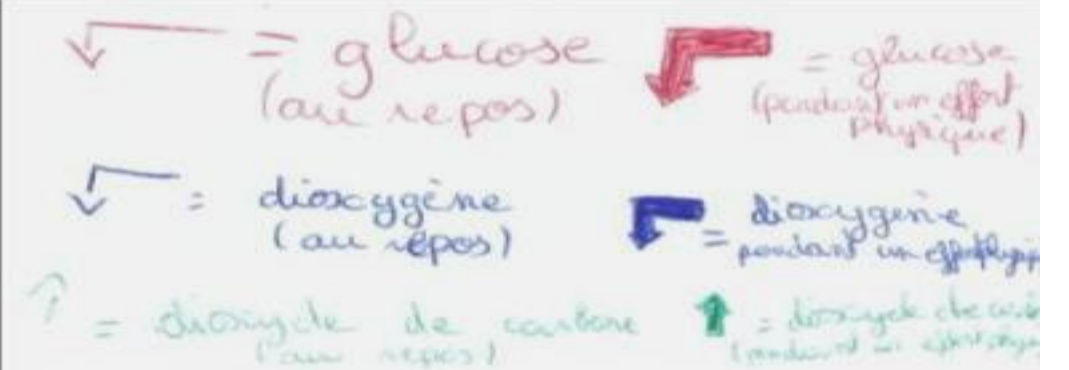 = glucose
(au repos)
= glucose
(pendant un effort
physique)
= dioxygène
(au repos)
= dioxygène
pendant un effort
= dioxyde de carbone
(au repos)
= dioxyde de
(pendant un effort